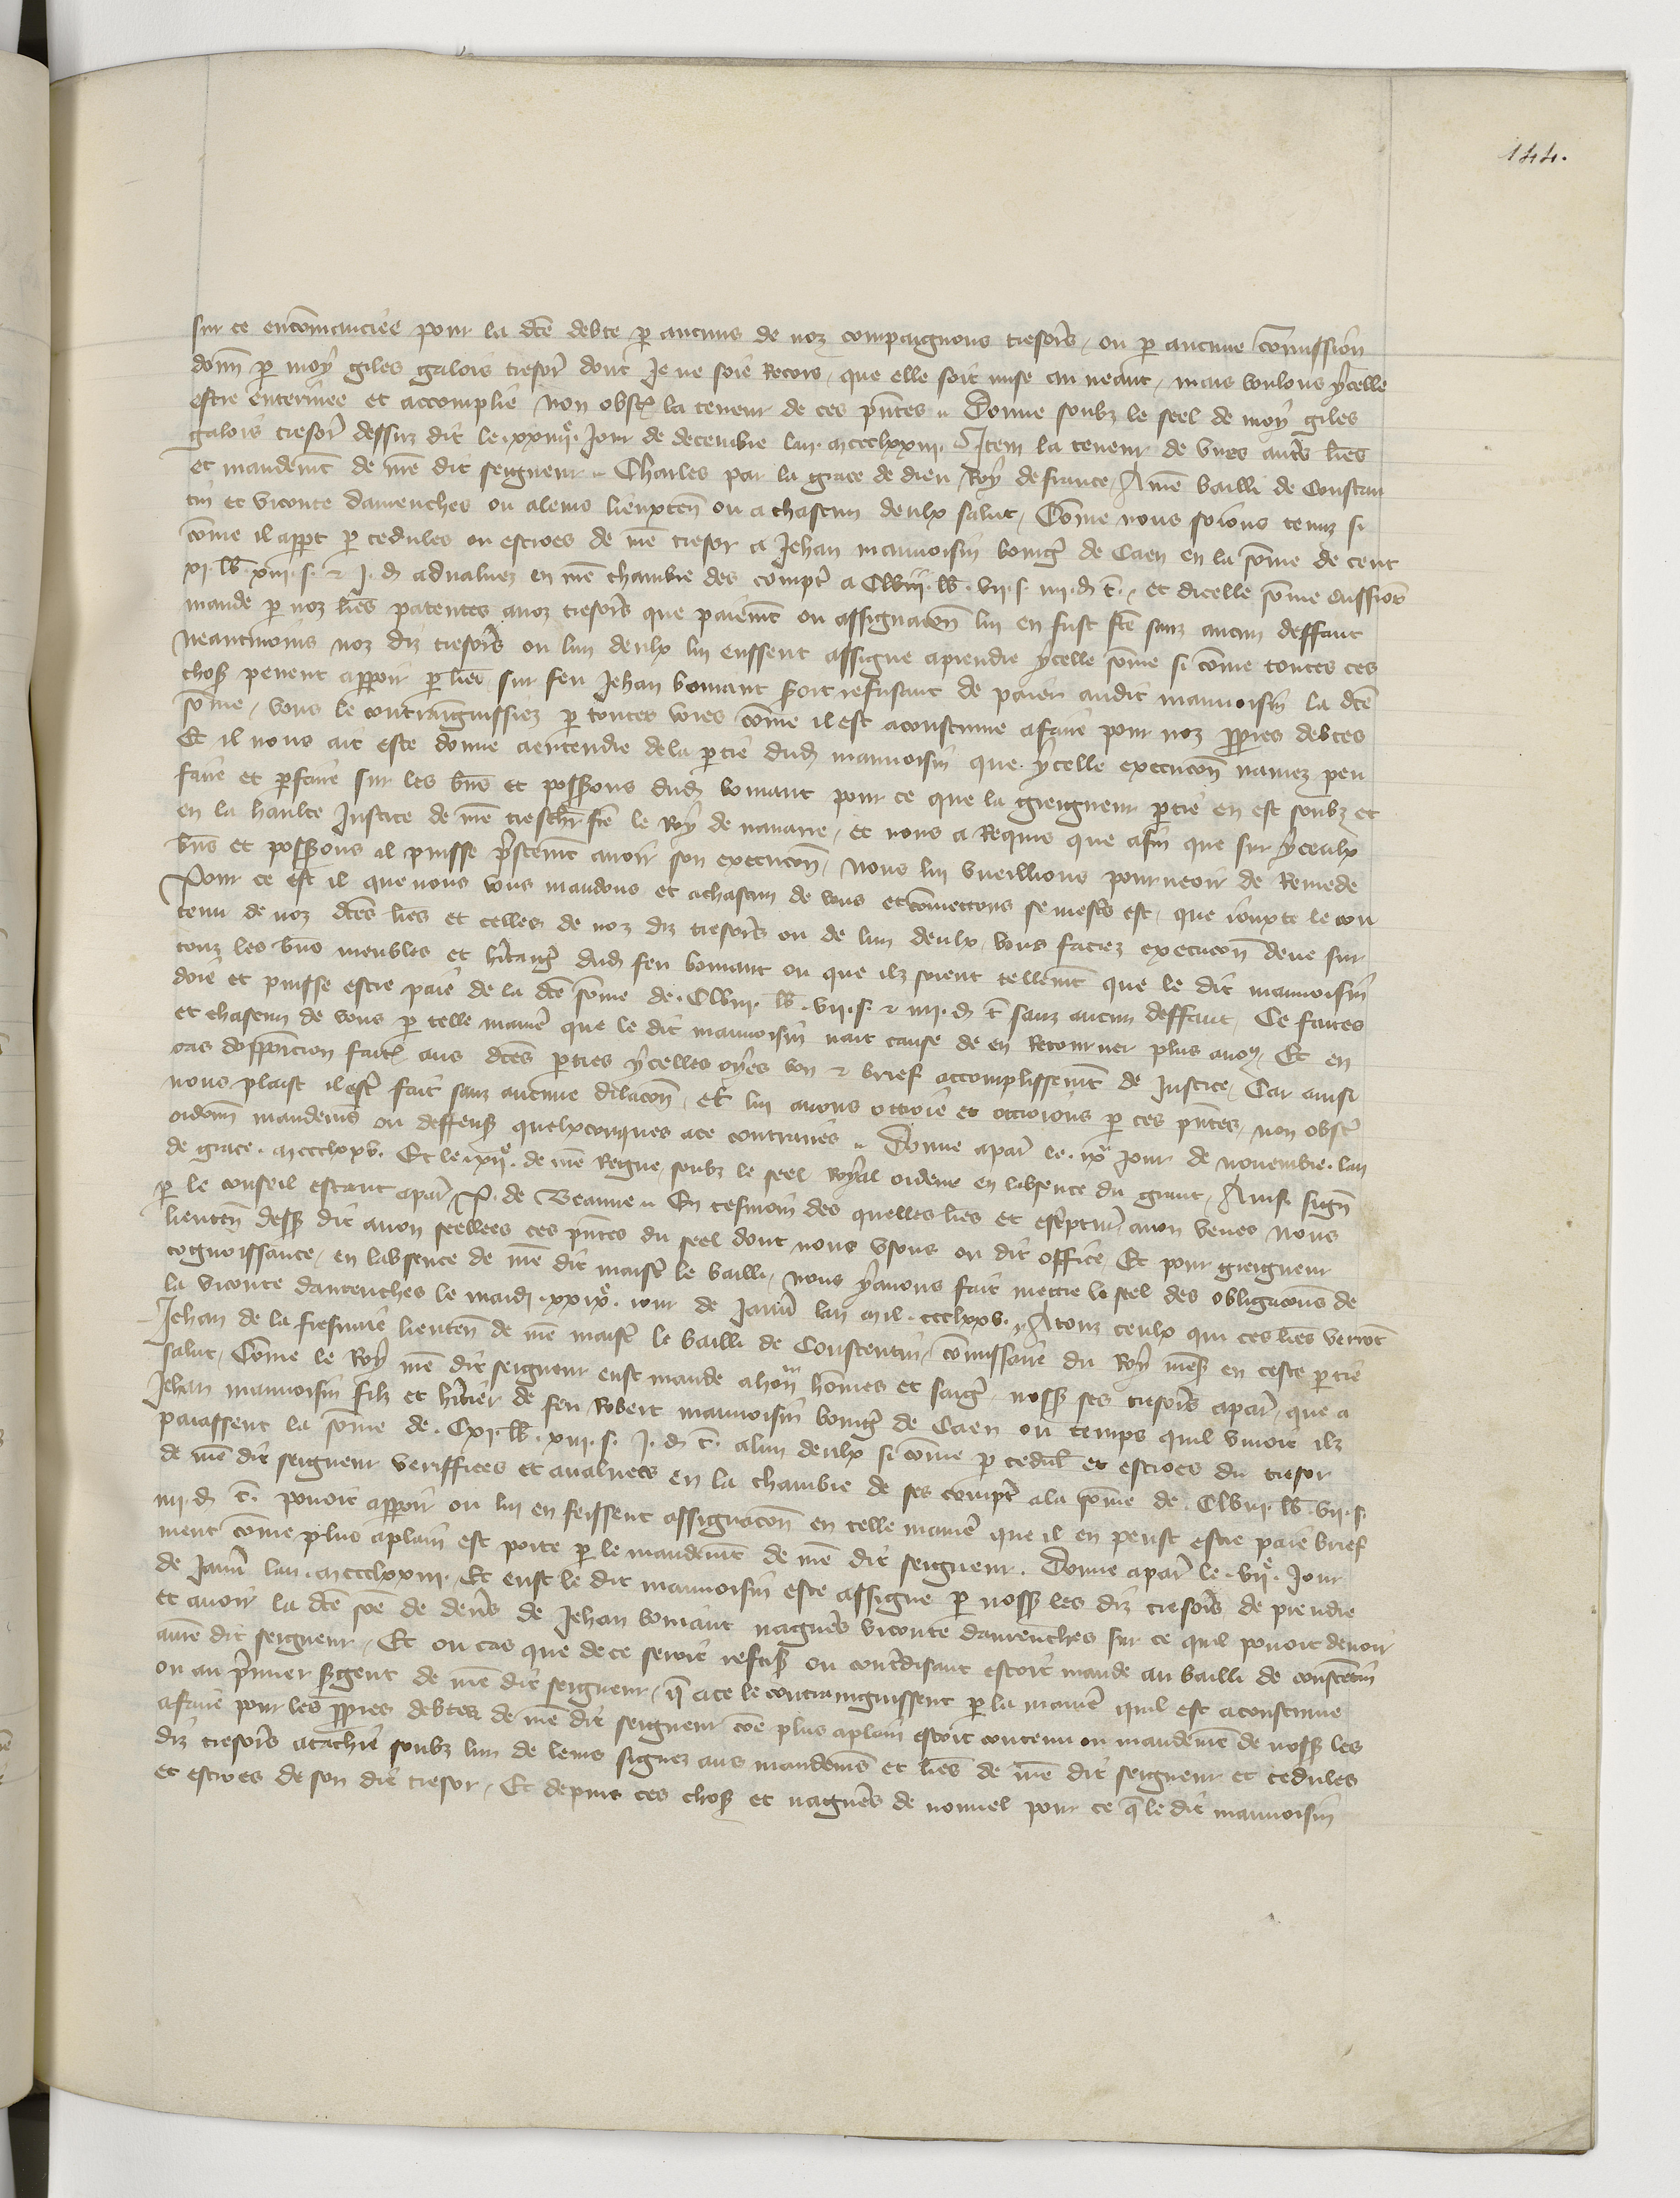 144.
sur ce encōmanciee pour la dc̄e debte ꝑ aucuns de noz compaignons tresors̄ / ou ꝑ aucune cōmission
donn̄ ꝑ moy giles galois tresor̄ dont Je ne soie Recors / que elle soit mise au neant / mais voulons ycelle
estre enterinee et accomplie Non obst̄ la teneur de ces pn̄tes Donne soubz le seel de moy giles
galois tresor̄ dessuz dit le .xxiiiie. Jour de decembre lan mccclxxiii. Item la teneur de vnes autr̄s lr̄es
et mandemt̄ de mē dit seigneur Charles par la grace de dieu Roy de france / A mē bailli de Constan
tin et viconte dauenches ou a leurs lieuxten̄ ou a chascun deulx salut / Cōme nous soions tenuz si
cōme il appt ꝑ cedules ou escroes de mē tresor a Jehan mauuoisin bourḡ de Caen en la sōme de cent
xi. lb̄. xiii. s. ⁊ j. d̄ aduąluez en mē chambre des compt̄ a Clviii. lb̄. vii. s. iiii. d̄ t̄. / et dicelle sōme eussions
mande ꝑ noz lr̄es patentes a noz tresors̄ que paiemt̄ ou assignacōn lui en fust fc̄e sanz aucun deffaut
Neantmoins noz diz tresors̄ ou lun deulx lui eussent assigne a prendre ycelle sōme si cōme toutes ces
chos̄ peuent apparoir ꝑ lr̄es sur feu Jehan bomant soit refusant de paier audit mauuoisin la dc̄e
sōme / vous le contraingnissiez ꝑ toutes voies cōme il est acoustume a faire pour noz ꝓpres debtes
Et il nous ait este donne a entendre de la ꝑtie dud̄ mauuoisin que ycelle execucōn nauiez peu
faire et ꝑfaire sur les bn̄s et poss̄ions dud̄ bomant pour ce que la greigneur ꝑtie en est soubz et
en la haulte Justice de mē tresch̄r fr̄e le Roy de nauarre / et nous a Requis que afin que sur yceulx
bn̄s et poss̄ions il puisse pr̄stemt̄ auoir son execucōn / Nous lui vueillions pourueoir de Remede
Pour ce est il que nous vous mandons et a chascun de vous et cōmettons se mestr̄ est / que iouxte le con
tenu de noz dc̄es lr̄es et celles de noz diz tresors̄ ou de lun deulx vous faciez execucōn deue sur
touz les bn̄s meubles et hr̄itaiḡ dud̄ feu bomant ou que ilz soient tellemt̄ que le dit mauuoisin
doie et puisse estre paie de la dc̄e sōme de Clviii. lb̄. vii. s. ⁊ iiii. d̄ t̄ sanz aucun deffaut / Ce faites
et chascun de vous ꝑ telle manr̄e que le dit mauuoisin nait cause de en Retourner plus a nous / Et en
cas dopposicion faites aus dc̄es ꝑties ycelles oyes bon ⁊ brief accomplissemt̄ de Justice / Car ainsi
nous plaist il estr̄ fait sanz aucune dilacōn / et lui auons ottroie et ottroions ꝑ ces pn̄tes / non obst̄
ordonn̄ mandems̄ ou deffens̄ quelxconques a ce contraires Donne a par̄ le .ixe. Jour de nouembre lan
de grace mccclxxv. Et le .xiie. de mē Regne soubz le seel Royal ordene en labsence du grant / Ains. sign̄
ꝑ le conseil estant a par̄ P. de Beaune En tesmoin des quelles lr̄es et escriptur̄ auon veues Nous
lieuten̄ dess̄ dit auon seellees ces pn̄tes du seel dont nous vsons ou dit office / Et pour greigneur
cognoissance / en labsence de mē dit maistr̄ le bailli / nous y auons fait mettre le seel des obligacōns de
la viconte dauenches le mardi .xxixe. iour de Januī lan mil ccclxxv. A touz ceulx qui ces lr̄es verront
Jehan de la fresnaie lieuten̄ de mē maistr̄ le bailli de Constentin / cōmissaire du Roy mes̄ en ceste ꝑtie
salut / Cōme le Roy mē dit seigneur eust mande a hon̄ hōmes et saiges noss̄ ses tresors̄ a par̄ / que a
Jehan mauuoisin filz et hr̄itier de feu Robert mauuoisin bourḡ de Caen ou temps quil viuoit ilz
paiassent la sōme de Cxi. lb̄. xiii. s. j. d̄ t̄. a lun deulx si cōme ꝑ cedul̄ et escroes du tresor
de mē dit seigneur veriffiees et aualuees en la chambre de ses compt̄ a la sōme de Clviii. lb̄. vii. s.
iiii. d̄ t̄. pouoit apparoir ou lui en feissent assignacōn en telle manr̄e que il en peust estre paie brief
ment cōme plus a plain est porte ꝑ le mandemt̄ de mē dit seigneur. Donne a par̄ le .viie. Jour
de Januī lan mccclxxiii. Et eust le dit mauuoisin este assigne ꝑ noss̄ les diz tresors̄ de prendre
et auoir la dc̄e sōe de denrs̄ de Jehan bomant nagueres viconte dauenches sur ce quil pouoit deuoir
a mē dit seigneur / Et ou cas que de ce seroit refus̄ ou contredisant estoit mande au bailli de constētin
ou au pr̄mier sergent de mē dit seigneur / q̄ a ce le contraingnissent ꝑ la manr̄e quil est acoustume
a faire pour les ꝓpres debtes de mē dit seigneur cōe plus a plain estoit contenu ou mandemt̄ de noss̄ les
diz tresors̄ atachie soubz lun de leurs signez aus mandems̄ et lr̄es de mē dit seigneur et cedules
et escroes de son dit tresor / Et depuis ces chos̄ et nagueres de nouuel pour ce q̄ le dit mauuoisin